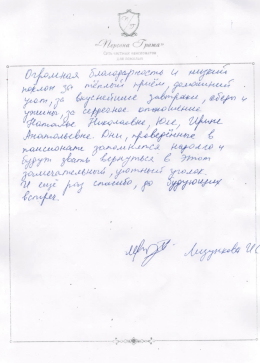 Огромная благодарность и низкий
поклон за тёплый приём, домашний
уют, за вкуснейшие завтраки, обеды и
ужины, за сердечное отношение
Наталье Николаевне, Юле, Ирине
Анатольевне Дни, проведённые в
пансионате запомнятся надолго и
будут звать вернуться в этот
замечательный, уютный уголок.
И ещё раз спасибо, до будующих
встреч.